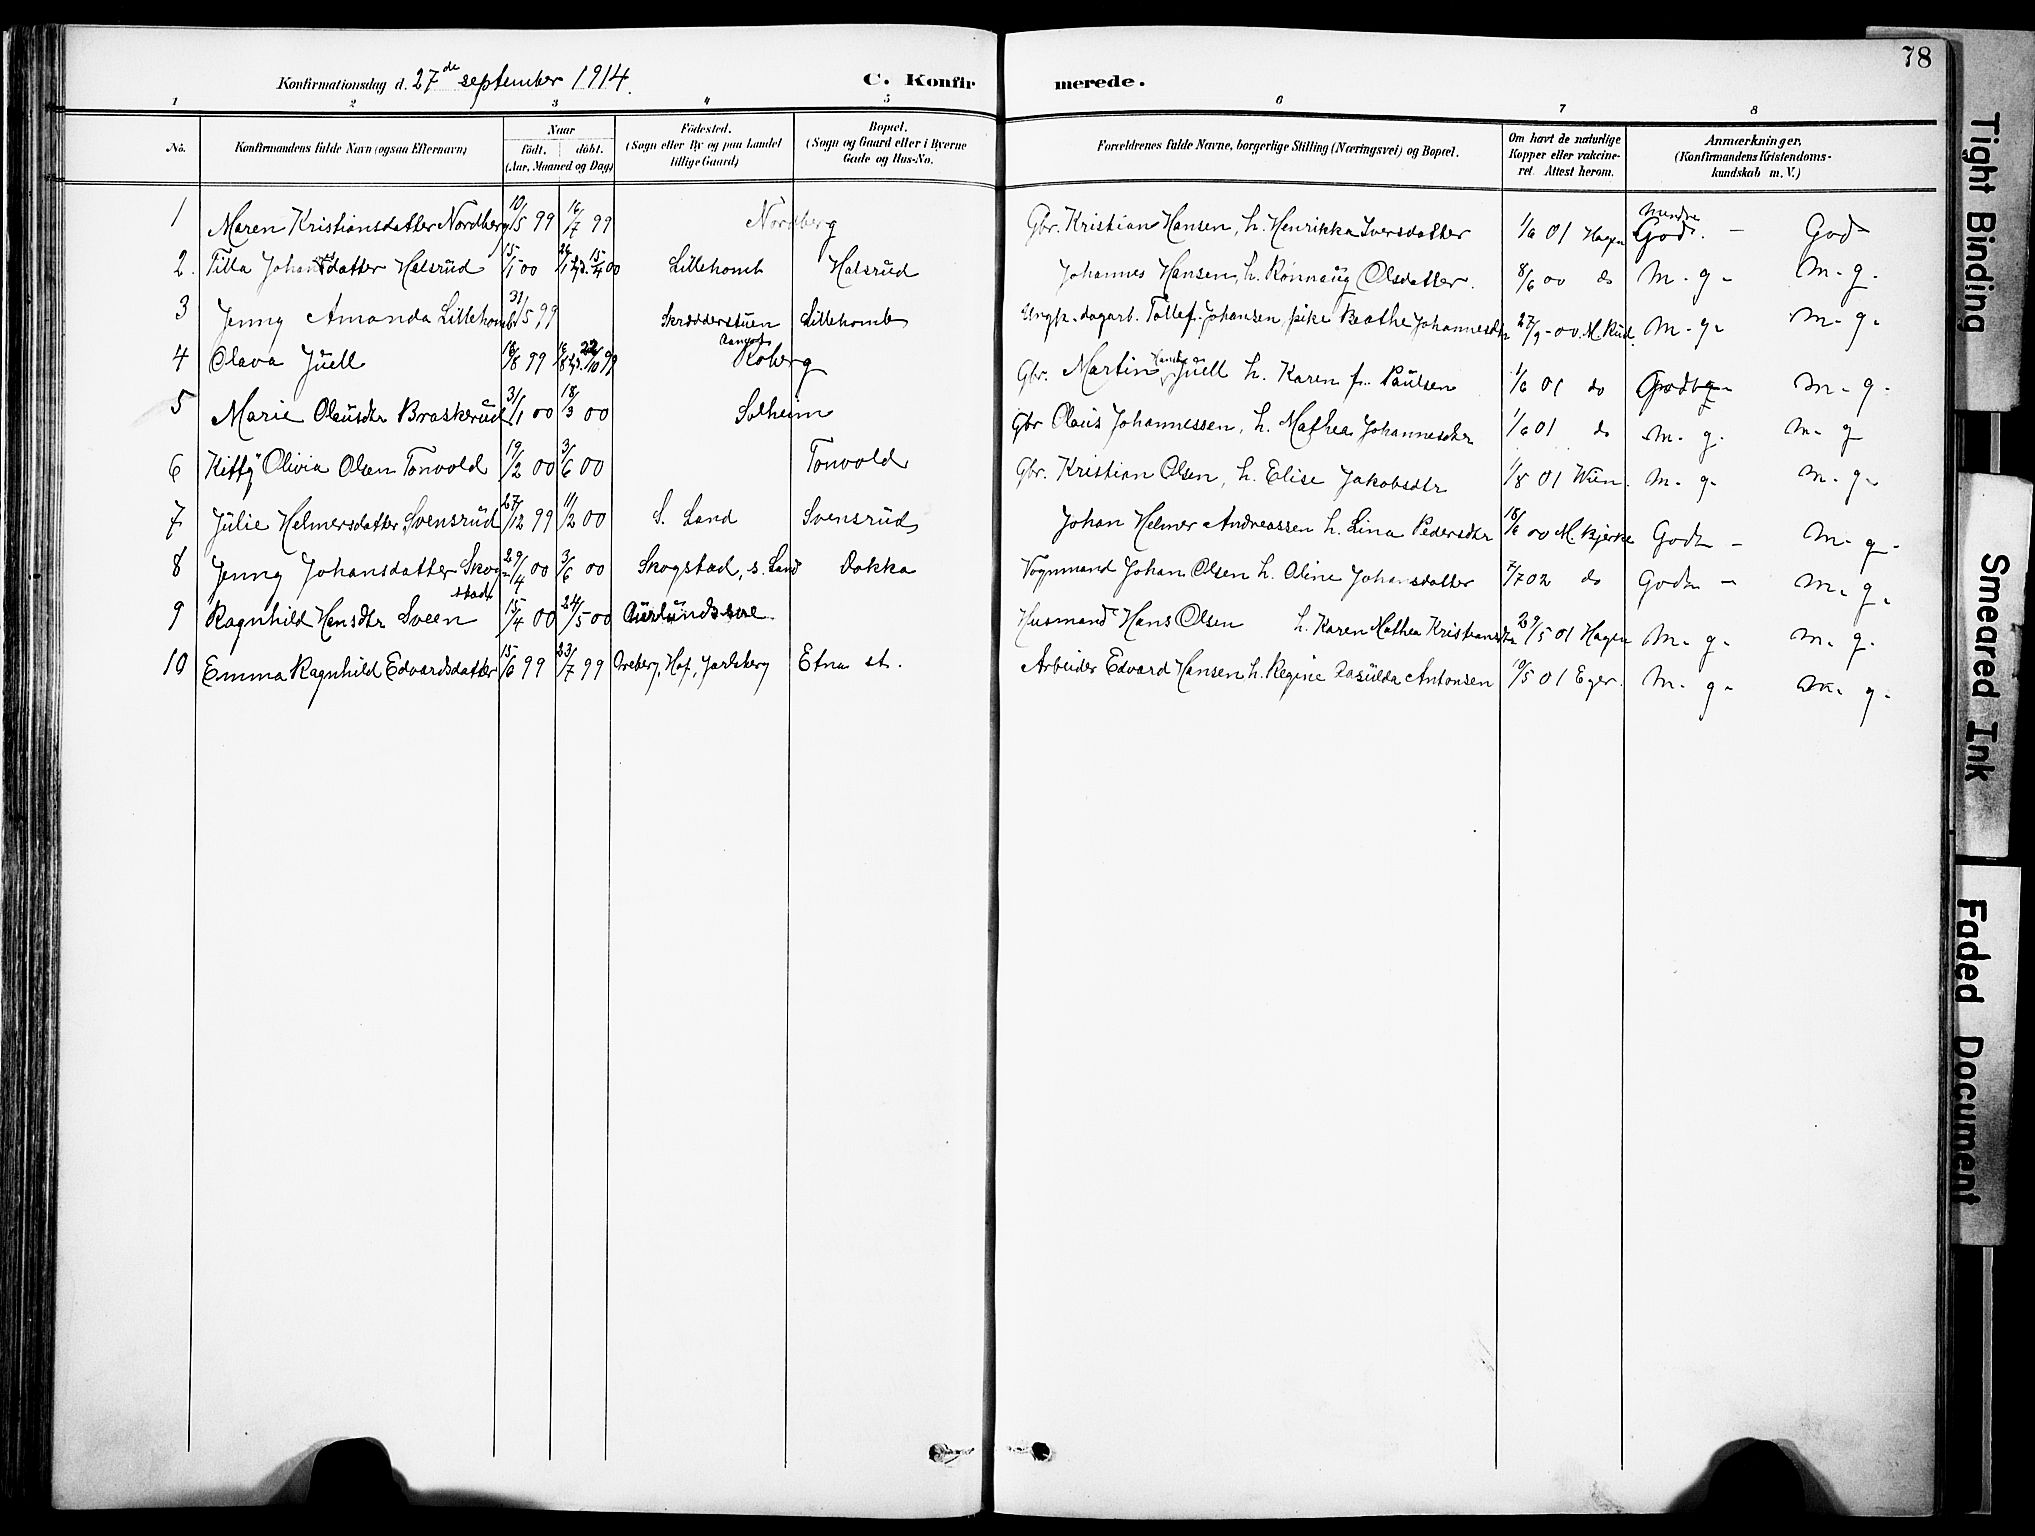 78
Konfirmationsdag d. 27de september 1914.
C. Konfirmerede.
1 2 3 4 5 6 7 8
No. Konfirmandens fulde Navn (ogsaa Efternavn) Naar födt. döbt. (Aar, Maaned og Dag) Födested. (Sogn eller By og paa Landet tillige Gaard) Bopæl. (Sogn og Gaard eller i Byerne Gade og Hus-No. Forældrenes fulde Navne, borgerlige Stilling (Næringsvei) og Bopæl. Om havt de naturlige Kopper eller vakcineret. Attest herom. Anmærkninger. (Konfirmandens Kristendomskundskab m. V.)
1 Maren Kristiansdatter Nordberg 10/5 99 16/7 99 Nordberg Gbr. Kristian Hansen, h. Henrikka Iversdatter 1/6 01 Hagen mindre Godt. - God
2. Tilla Johansdatter Halsrud 15/1 00 15/4 00 Lillehomb Halsrud Johannes Hansen, h. Rønnaug Olsdatter. 8/6 00 do M. g. M. g.
3 Jenny Amanda Lillehomb 31/5 99 Skrædderstuen Lillehomb Ungk. dagarb. Tollef Johansen, pike Beathe Johannesdtr 27/9 - 00. M. Rud. M. g. M. g.
4 Olava Juell 16/8 99 22/10 99 Koberg Gbr. Martin Juell h. Karen f. Paulsen 1/6 01 do M. g.
5 Marie Olausdtr Braskerud 31/1 00 18/3 00 Solheim Gbr Olaus Johannessen, h. Mathea Johannesdtr 1/6 01 do M. g. M. g
6 Kitty Olivia Olsen Tonvold 19/2 00 3/6 00 Tonvold Gbr. Kristian Olsen, h. Elise Jakobsdtr 1/8 01 Wien. M. g. M. g.
7 Julie Helmersdatter Svensrud 27/12 99 11/2 00 S. Land Svensrud Johan Helmer Andreassen h. Lina Pedersdtr 18/6 00 M. Bjerke Godt - M. g.
8 Jenny Johansdatter Skogstad 29/4 00 3/6 00 Skogstad, s. Land Dokka Vognmand Johan Olsen h. Oline Johansdatter 7/7 02 do Godt - M. g.
9 Ragnhild Hansdtr Sveen 15/4 00 24/5 00 Husmand Hans Olsen h. Karen Mathea Kristiansdtr 29/5 01 Hagen M. g. M. g.
10 Emma Ragnhild Edvardsdatter 15/6 99 23/7 99 Hof, Jarlsberg Etna st. Arbeider Edvard Hansen h. Regine Antonsen 10/5 01 Eger. M. g. M. g.
Tight Binding
Smeared Ink
Faded Document